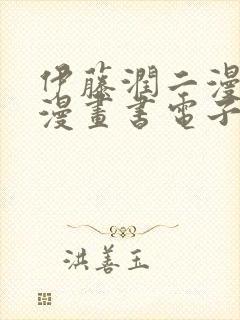 伊藤潤二漫
漫畫書電子
洪善玉